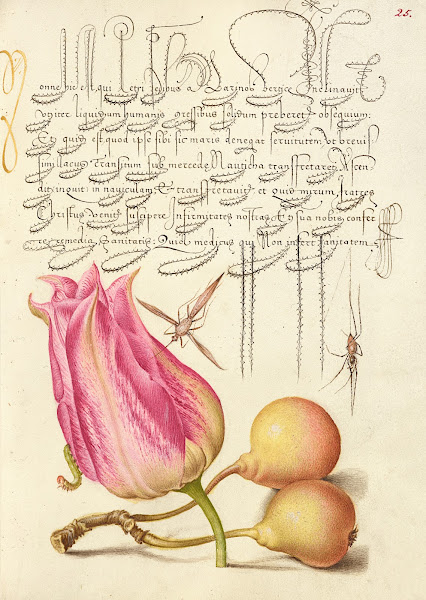 25.
onne hic est, qui petri sedibus a Marinos vertice inclinavit
ut iter liquidum humanis gressibus solidum preberet obsequium:
Et quid est quod ipse sibi sic maris denegat servitutem, ut brevis
simi lacus Transitum sub mercede Nautica transfretaret? Ascen
dit inquit in naviculam, & transfretavit: et quid mirum, fratres
Christus venit suscipere Infirmitates nostras, & sua nobis confer
re remedia Sanitatis: Quia medicus qui Non infert sanitatem